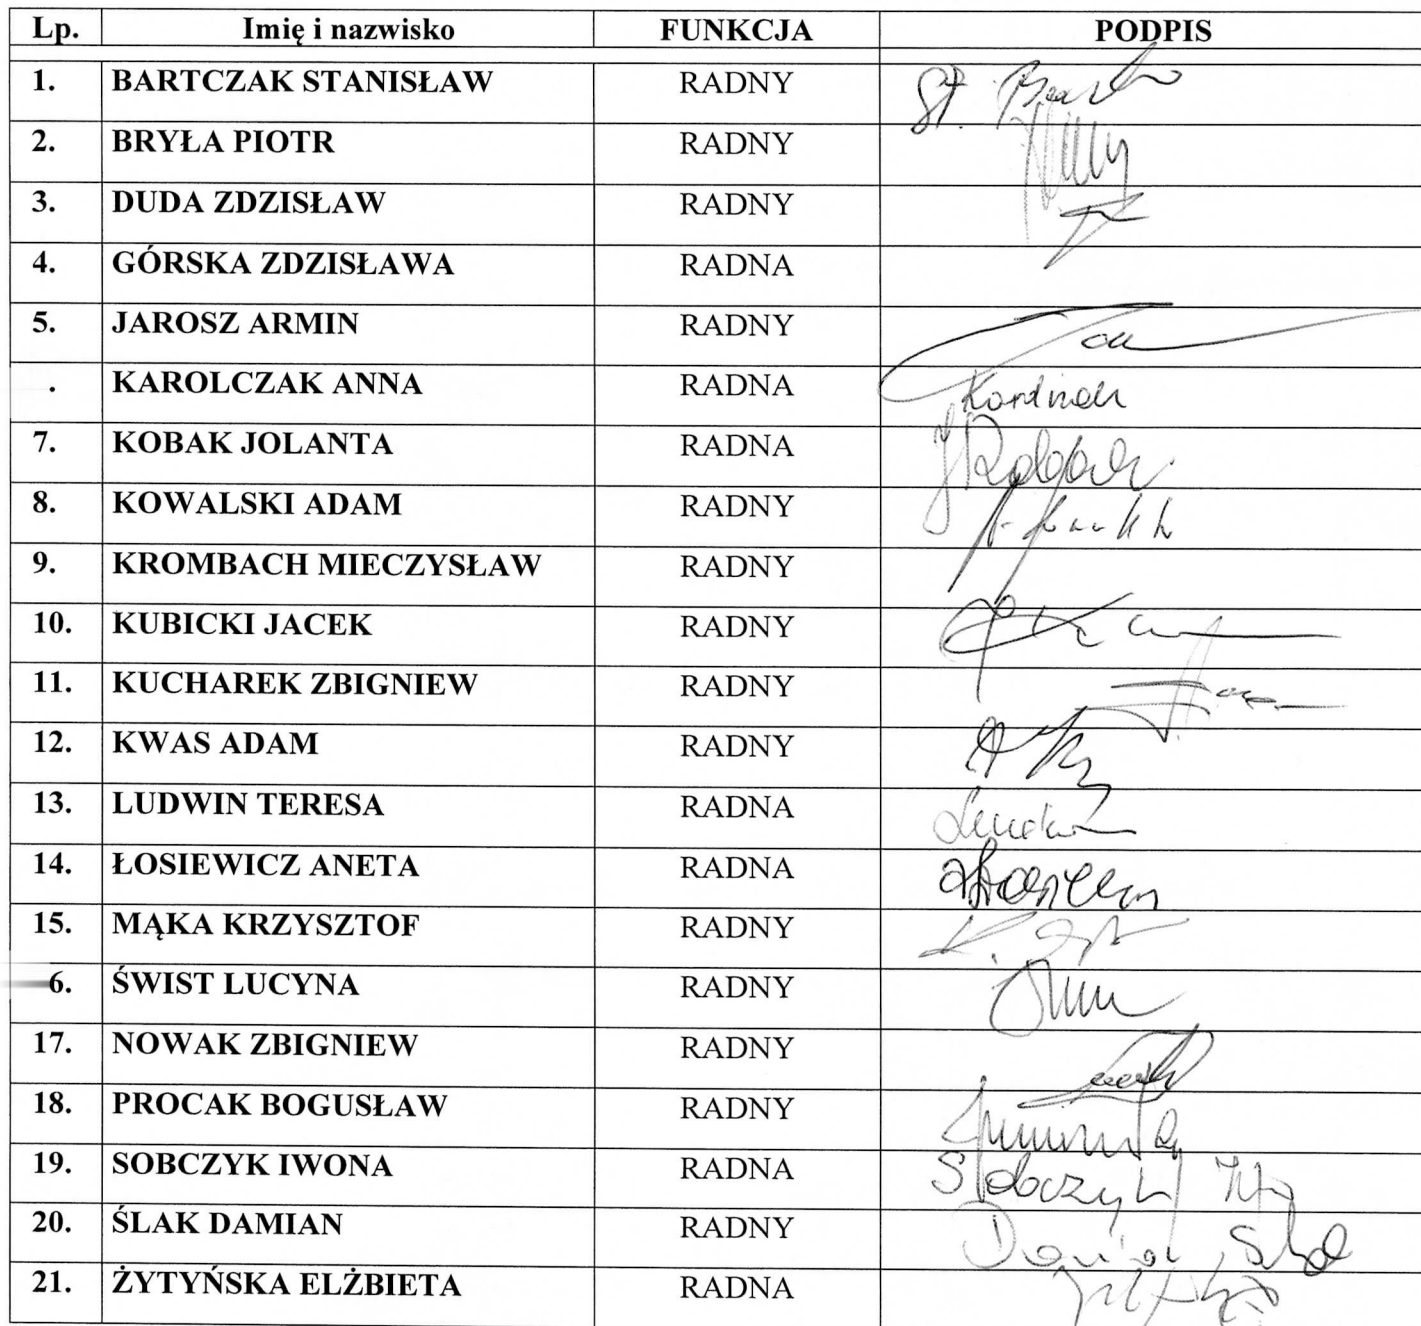 Lp. Imię i nazwisko FUNKCJA PODPIS
1. BARTCZAK STANISŁAW RADNY St.
2. BRYŁA PIOTR RADNY
3. DUDA ZDZISŁAW RADNY
4. GÓRSKA ZDZISŁAWA RADNA
5. JAROSZ ARMIN RADNY
. KAROLCZAK ANNA RADNA
7. KOBAK JOLANTA RADNA
8. KOWALSKI ADAM RADNY
9. KROMBACH MIECZYSŁAW RADNY
10. KUBICKI JACEK RADNY
11. KUCHAREK ZBIGNIEW RADNY
12. KWAS ADAM RADNY
13. LUDWIN TERESA RADNA
14. ŁOSIEWICZ ANETA RADNA
15. MĄKA KRZYSZTOF RADNY
6. ŚWIST LUCYNA RADNY
17. NOWAK ZBIGNIEW RADNY
18. PROCAK BOGUSŁAW RADNY
19. SOBCZYK IWONA RADNA Sobczyk
20. ŚLAK DAMIAN RADNY Damian
21. ŻYTYŃSKA ELŻBIETA RADNA